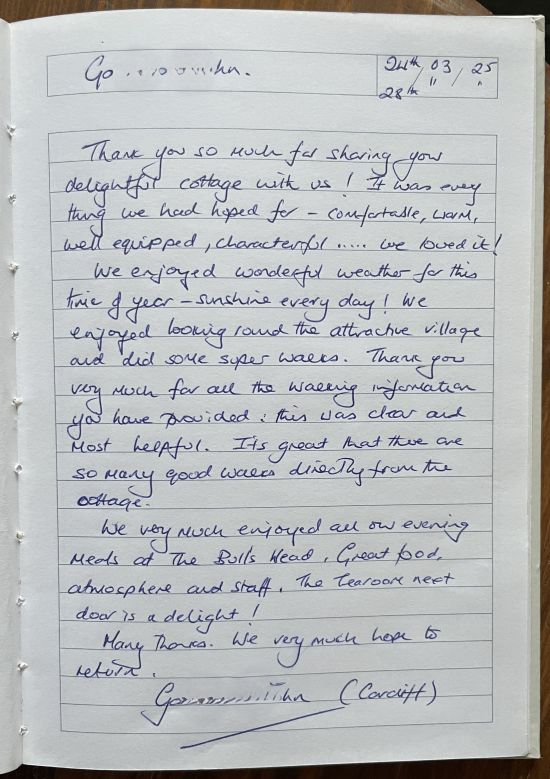 24th / 03 / 25
28th " "
Thank you so much for sharing your
delightful cottage with us! It was every
thing we had hoped for – comfortable, warm,
well equipped, characterful ..... we loved it!
We enjoyed wonderful weather for this
time of year – sunshine every day! We
enjoyed looking round the attractive village
and did some super walks. Thank you
very much for all the walking information
you have provided : this was clear and
most helpful. It's great that there are
so many good walks directly from the
cottage.
We very much enjoyed all our evening
meals at The Bulls Head. Great food,
atmosphere and staff. The tearoom next
door is a delight!
Many Thanks. We very much hope to
return.
(Cardiff)